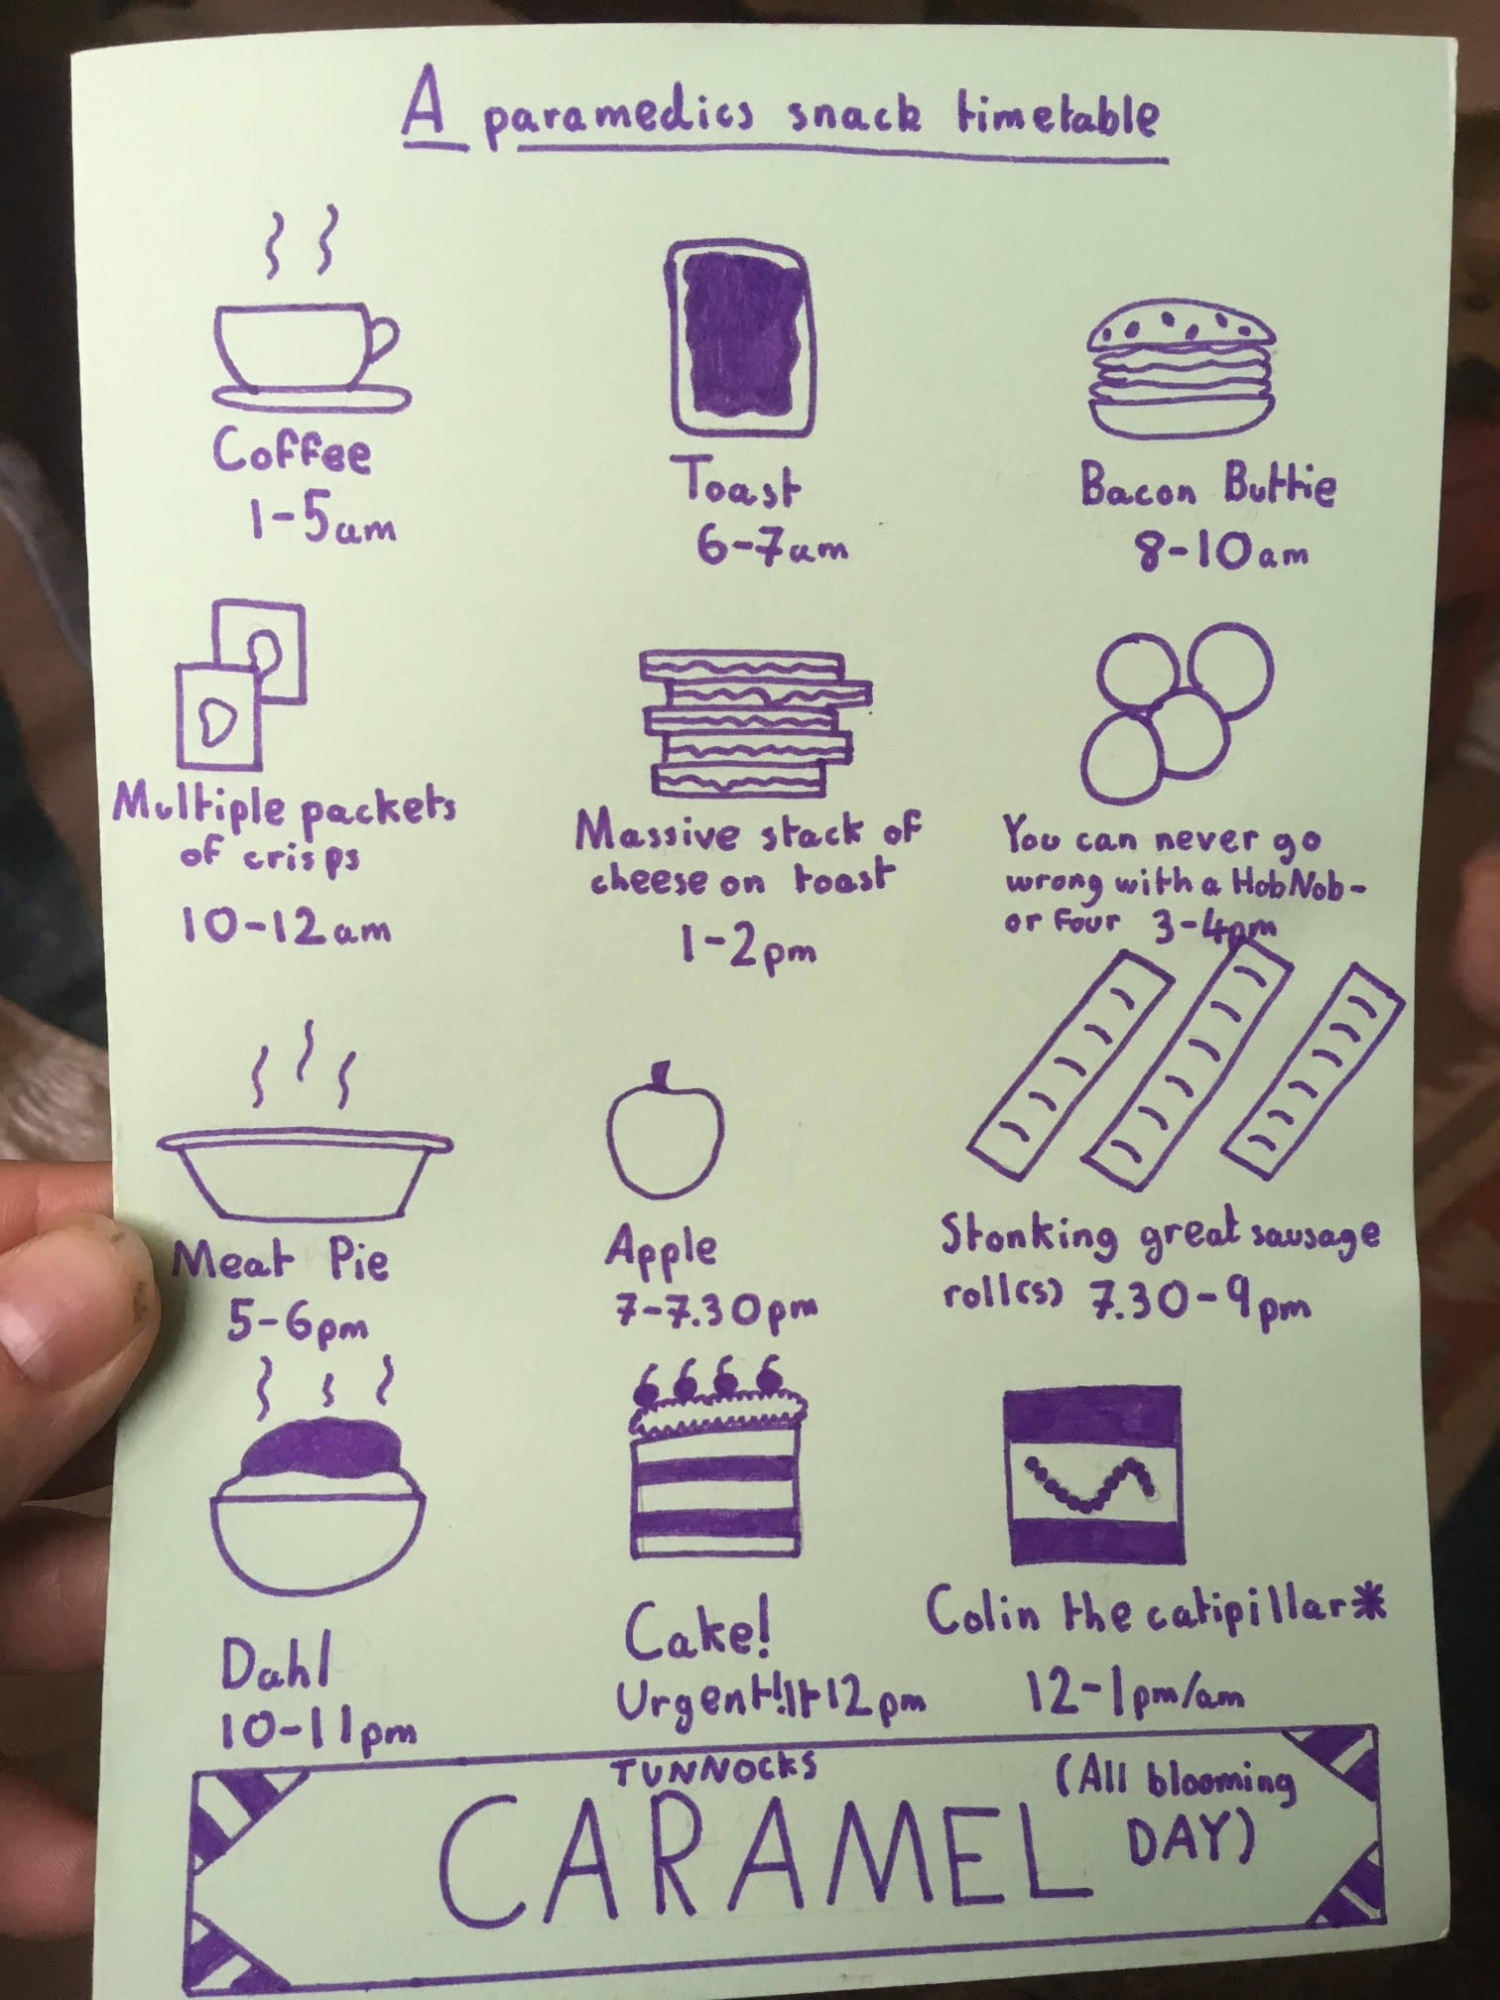 A paramedics snack timetable
Coffee
1-5am
Toast
6-7am
Bacon Buttie
8-10am
Multiple packets
of crisps
10-12am
Massive stack of
cheese on toast
1-2pm
You can never go
wrong with a HobNob-
or four 3-4pm
Meat Pie
5-6pm
Apple
7-7.30pm
Stonking great sausage
roll(s) 7.30-9pm
Dahl
10-11pm
Cake!
Urgent! 12pm
Colin the catipillar*
12-1pm/am
TUNNOCKS
CARAMEL
(All blooming
DAY)